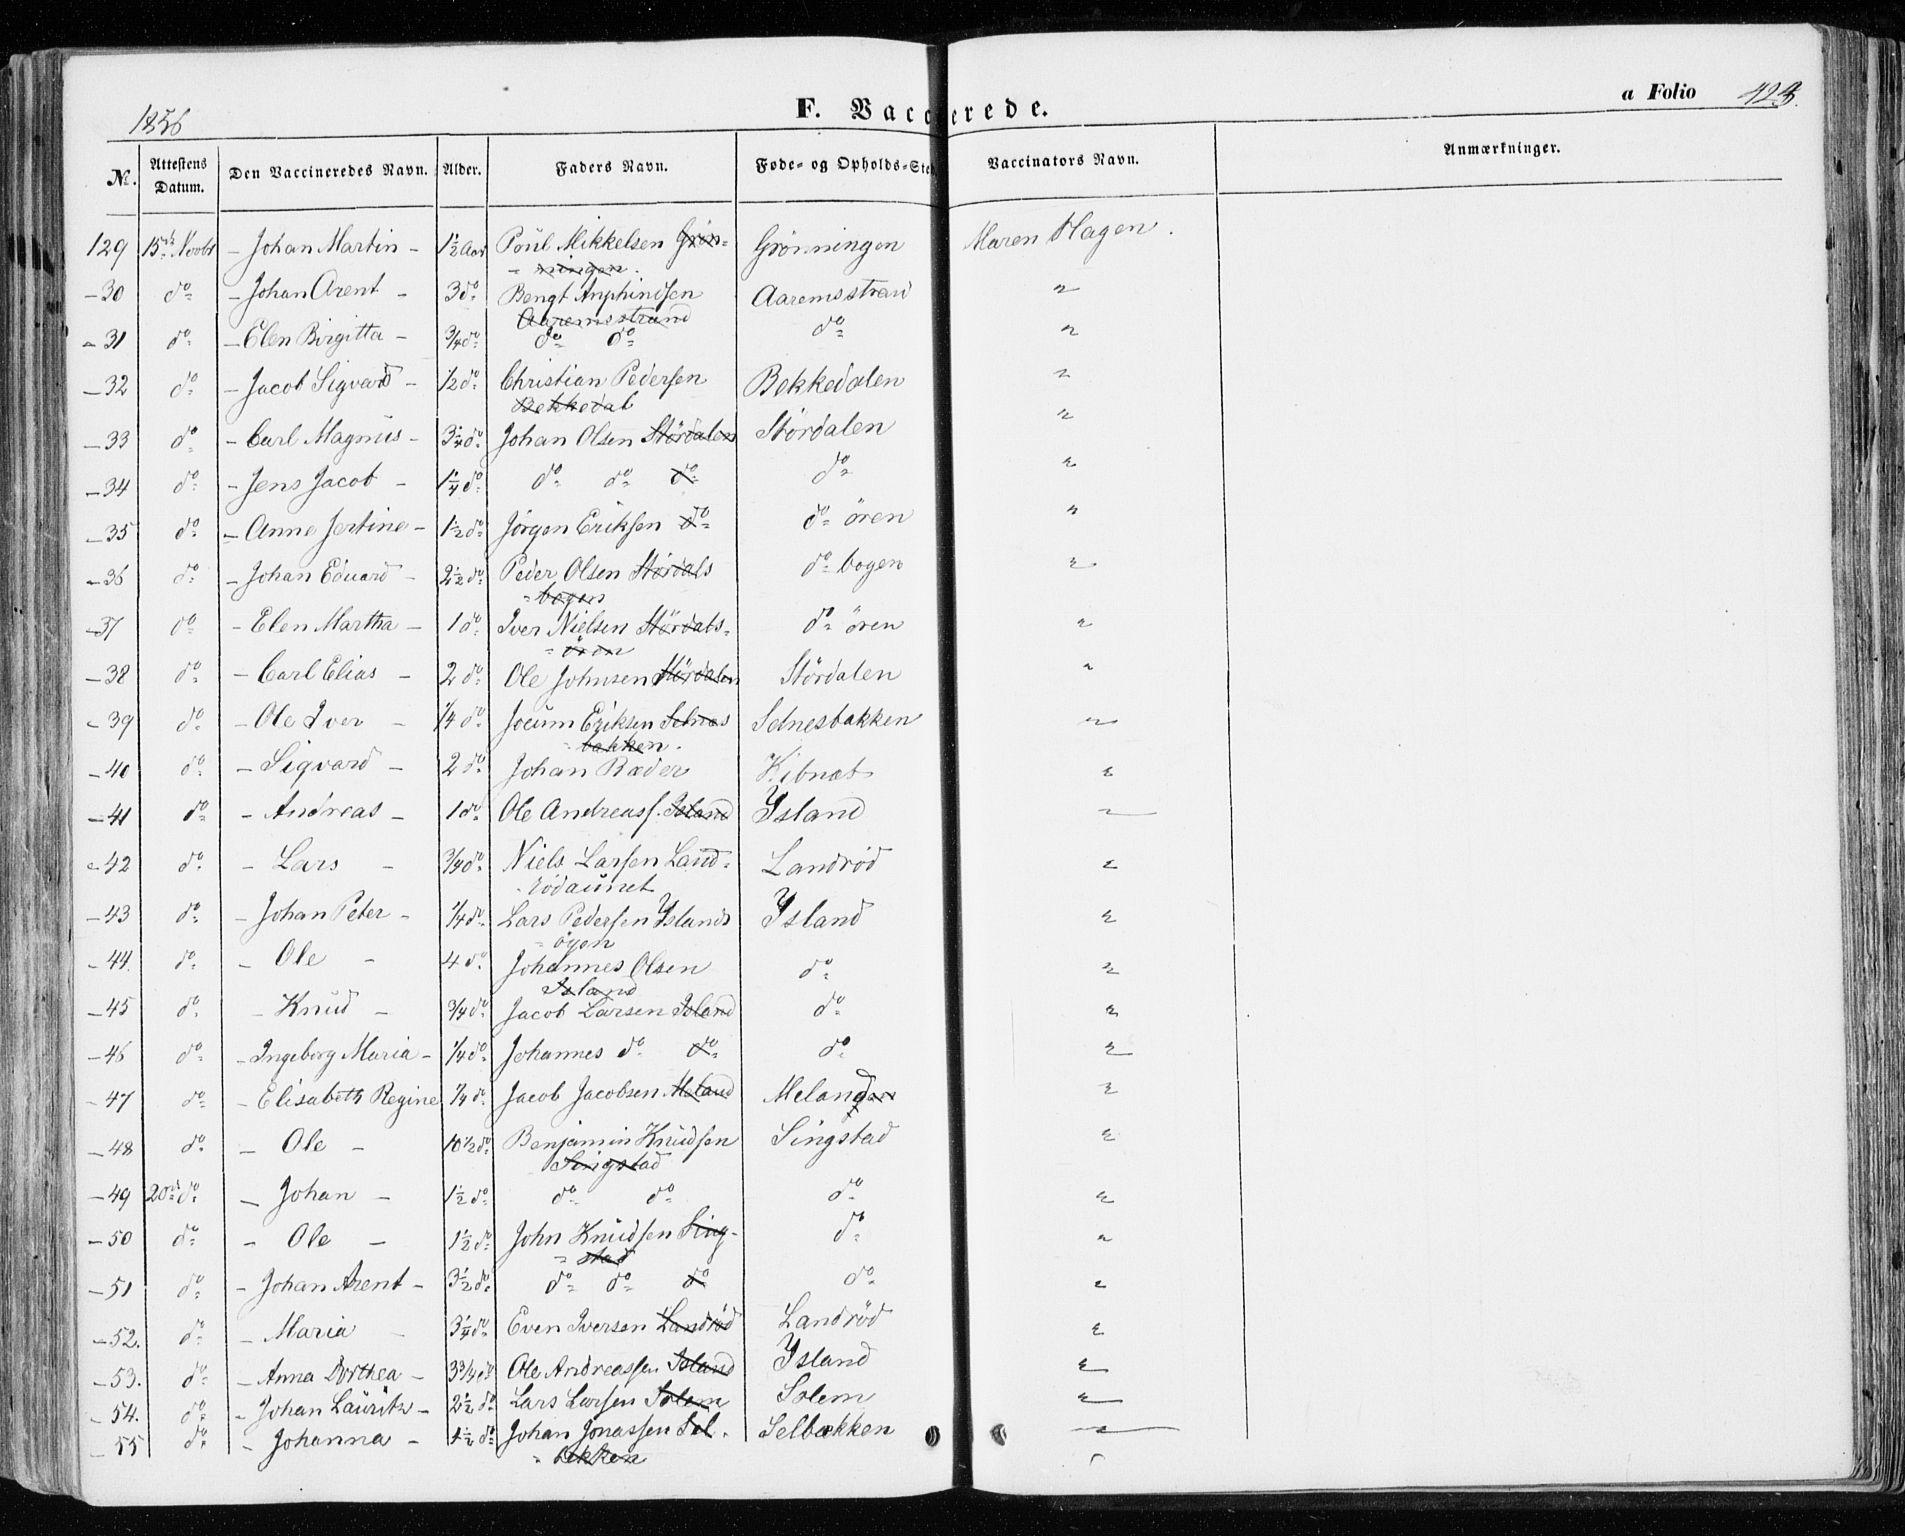 1856
F. Vaccinerede.
a Folio 423.
No. Attestens Datum. Den Vaccineredes Navn. Alder. Faders Navn. Føde- og Opholds-Sted Vaccinators Navn. Anmærkninger.
129 15de Novbr – Johan Martin – 1½ Aar Poul Mikkelsen Grön- Grönningen Maren Hagen.
- ningen.
– 30 do – Johan Arent – 3 do Bengt Anphindsen Aaremsstrand "
Aaremsstrand
– 31 do – Elen Birgitta – ¾ do do do do "
– 32 do – Jacob Sigvard – ½ do Christian Pedersen Bekkedalen "
Bekkedal
– 33 do – Carl Magnus – 3¼ do Johan Olsen Stördalen Stördalen "
– 34 do – Jens Jacob – 1¼ do do do do do "
– 35 do – Anne Jertine – 1½ do Jörgen Eriksen do do ören "
– 36 do – Johan Eduard – 2½ do Peder Olsen Stördals do bogen "
- bogen
– 37 do – Elen Martha – 1 do Iver Nielsen Stördals- do ören "
- ören
– 38 do – Carl Elias – 2 do Ole Johnsen Stördalen Stördalen "
– 39 do – Ole Iver – ¼ do Jocum Eriksen Selnes Selnesbakken "
- bakken.
– 40 do – Sigvard – 2 do Johan Ræder Kibnæt "
– 41 do – Andreas – 1 do Ole Andreass. Island Ysland "
– 42 do – Lars – ¾ do Niels Larsen Land- Landröd "
- rödaunet
– 43 do – Johan Peter – ¼ do Lars Pedersen Yslands Ysland "
- öyen
– 44. do – Ole – 4 do Johannes Olsen do "
Island
– 45 do – Knud – ¾ do Jacob Larsen Island do "
– 46 do – Ingeborg Maria – ¼ do Johannes do do do "
– 47 do – Elisabeth Regine ¼ do Jacob Jacobsen Meland Meland "
– 48 do – Ole – 10½ do Benjamin Knudsen Singstad "
Singstad
– 49 20de do – Johan – 1½ do do do do "
– 50 do – Ole – 1½ do John Knudsen Sing- do "
- stad
– 51 do – Johan Arent – 3½ do do do do do "
– 52. do – Maria – 3¼ do Even Iversen Landröd Landröd "
– 53. do – Anna Dorthea – 3¾ do Ole Andreassen Island Ysland "
– 54. do – Johan Lauritz – 2½ do Lars Larsen Solem Solem "
– 55 do – Johanna – 1½ do Johan Jonassen Sel- Selbækken "
- bekken